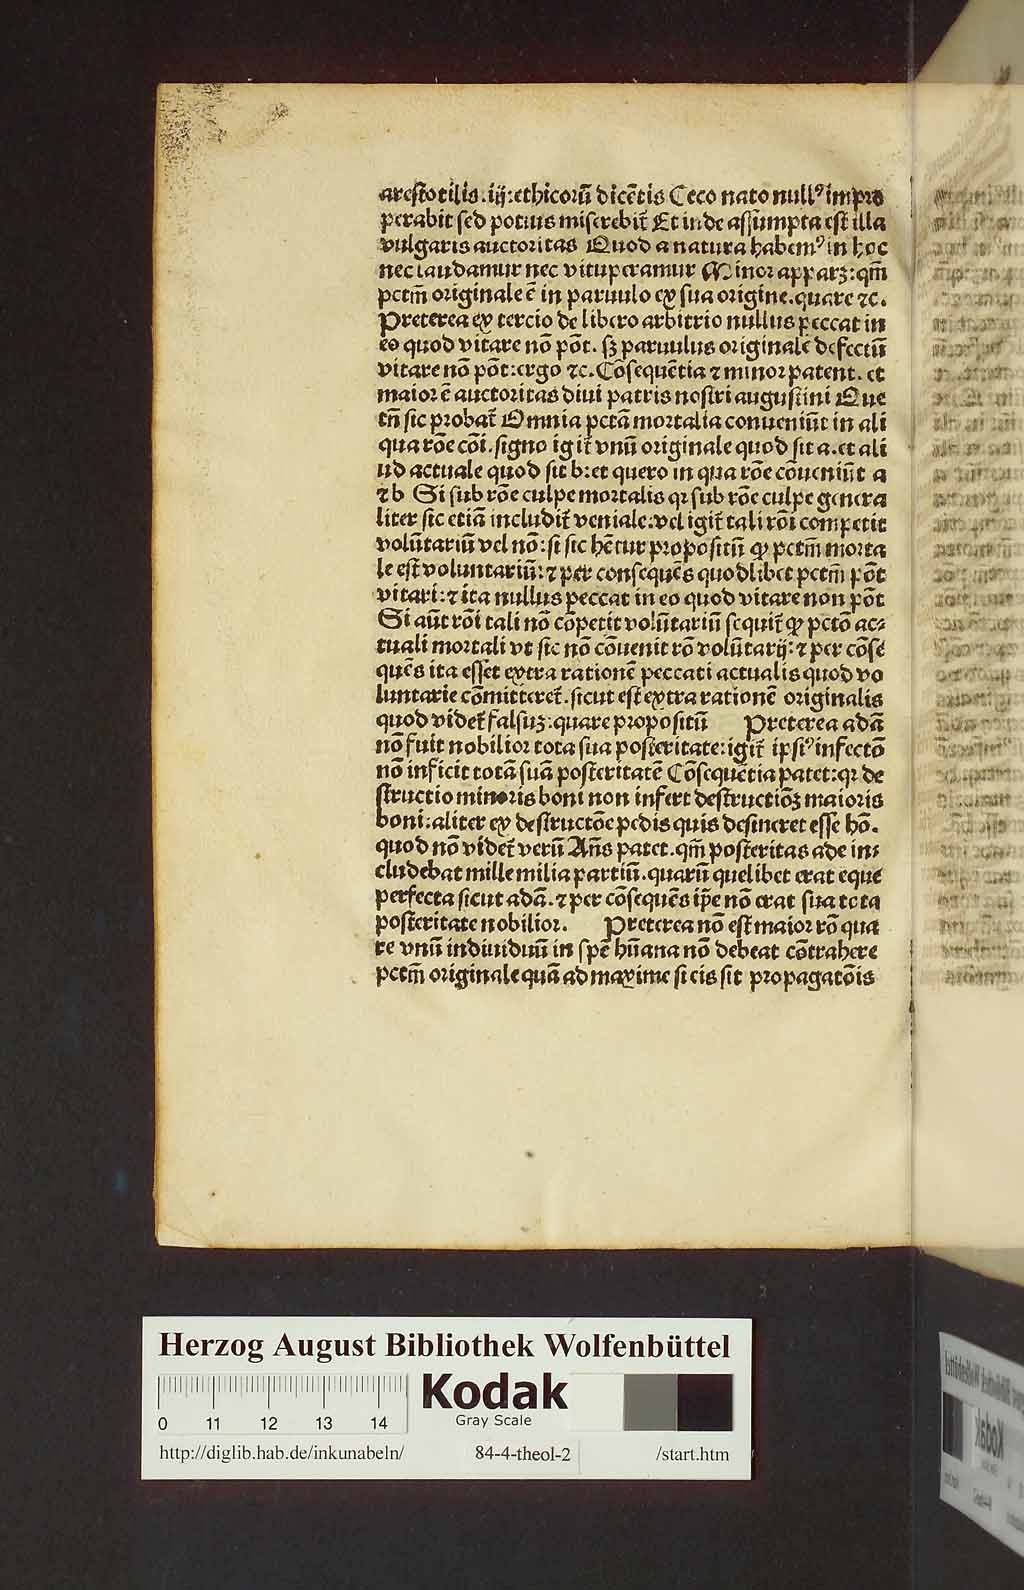 arestotilis .iij: ethicorū dicētis Ceco nato nullꝰ impro
perabit sed potius miserebit̄ Et inde assumpta est illa
vulgaris auctoritas Quod a natura habemꝰ in hoc
nec laudamur nec vituperamur Minor apparꝫ: qm̄
pctm̄ originale ē in paruulo ex sua origine. quare ⁊c.
Preterea ex tercio de libero arbitrio nullus peccat in
eo quod vitare nō pōt. sꝫ paruulus originalē defectū
vitare nō pōt: ergo ⁊c. Cōsequētia ⁊ minor patent. et
maior ē auctoritas diui patris nostri augustini Que
tn̄ sic probat̄ Omnia pctā mortalia conueniūt in ali
qua rōe cōi. signo igit̄ vnū originale quod sit a. et ali
ud actuale quod sit b: et quero in qua rōe cōueniūt a
⁊ b Si sub rōe culpe mortalis qꝛ sub rōe culpe genera
liter sic etiā includit̄ veniale: vel igit̄ tali rōi competit
volūtariū vel nō: si sic hētur propositū ꝙ pctm̄ morta
le est voluntariū: ⁊ per consequēs quodlibet pctm̄ pōt
vitari: ⁊ ita nullus peccat in eo quod vitare non pōt
Si aūt rōi tali nō cōpetit volūtariū sequit̄ ꝙ pctō ac⸗
tuali mortali vt sic nō cōuenit rō volūtarij: ⁊ per cōse
quēs ita esset extra rationē peccati actualis quod vo
luntarie cōmitteret̄. sicut est extra rationē originalis
quod videt̄ falsuꝫ: quare propositū Preterea adā
nō fuit nobilior tota sua posteritate: igit̄ ipsꝰ infectō
nō inficit totā suā posteritatē Cōsequētia patet: qꝛ de
structio minoris boni non infert destructiōꝫ maioris
boni: aliter ex destructōe pedis quis desineret esse hō.
quod nō videt̄ verū Añs patet. qm̄ posteritas ade in⸗
cludebat mille milia partiū. quarū quelibet erat eque
perfecta sicut adā. ⁊ per cōsequēs ip̄e nō erat sua tota
posteritate nobilior. Preterea nō est maior rō qua
re vnū indiuiduū in spē hūana nō debeat cōtrahere
pctm̄ originale quā ad maxime si eis sit propagatōis
Herzog August Bibliothek Wolfenbüttel
0 11 12 13 14
Kodak
Gray Scale
http://diglib.hab.de/inkunabeln/ 84-4-theol-2 /start.htm